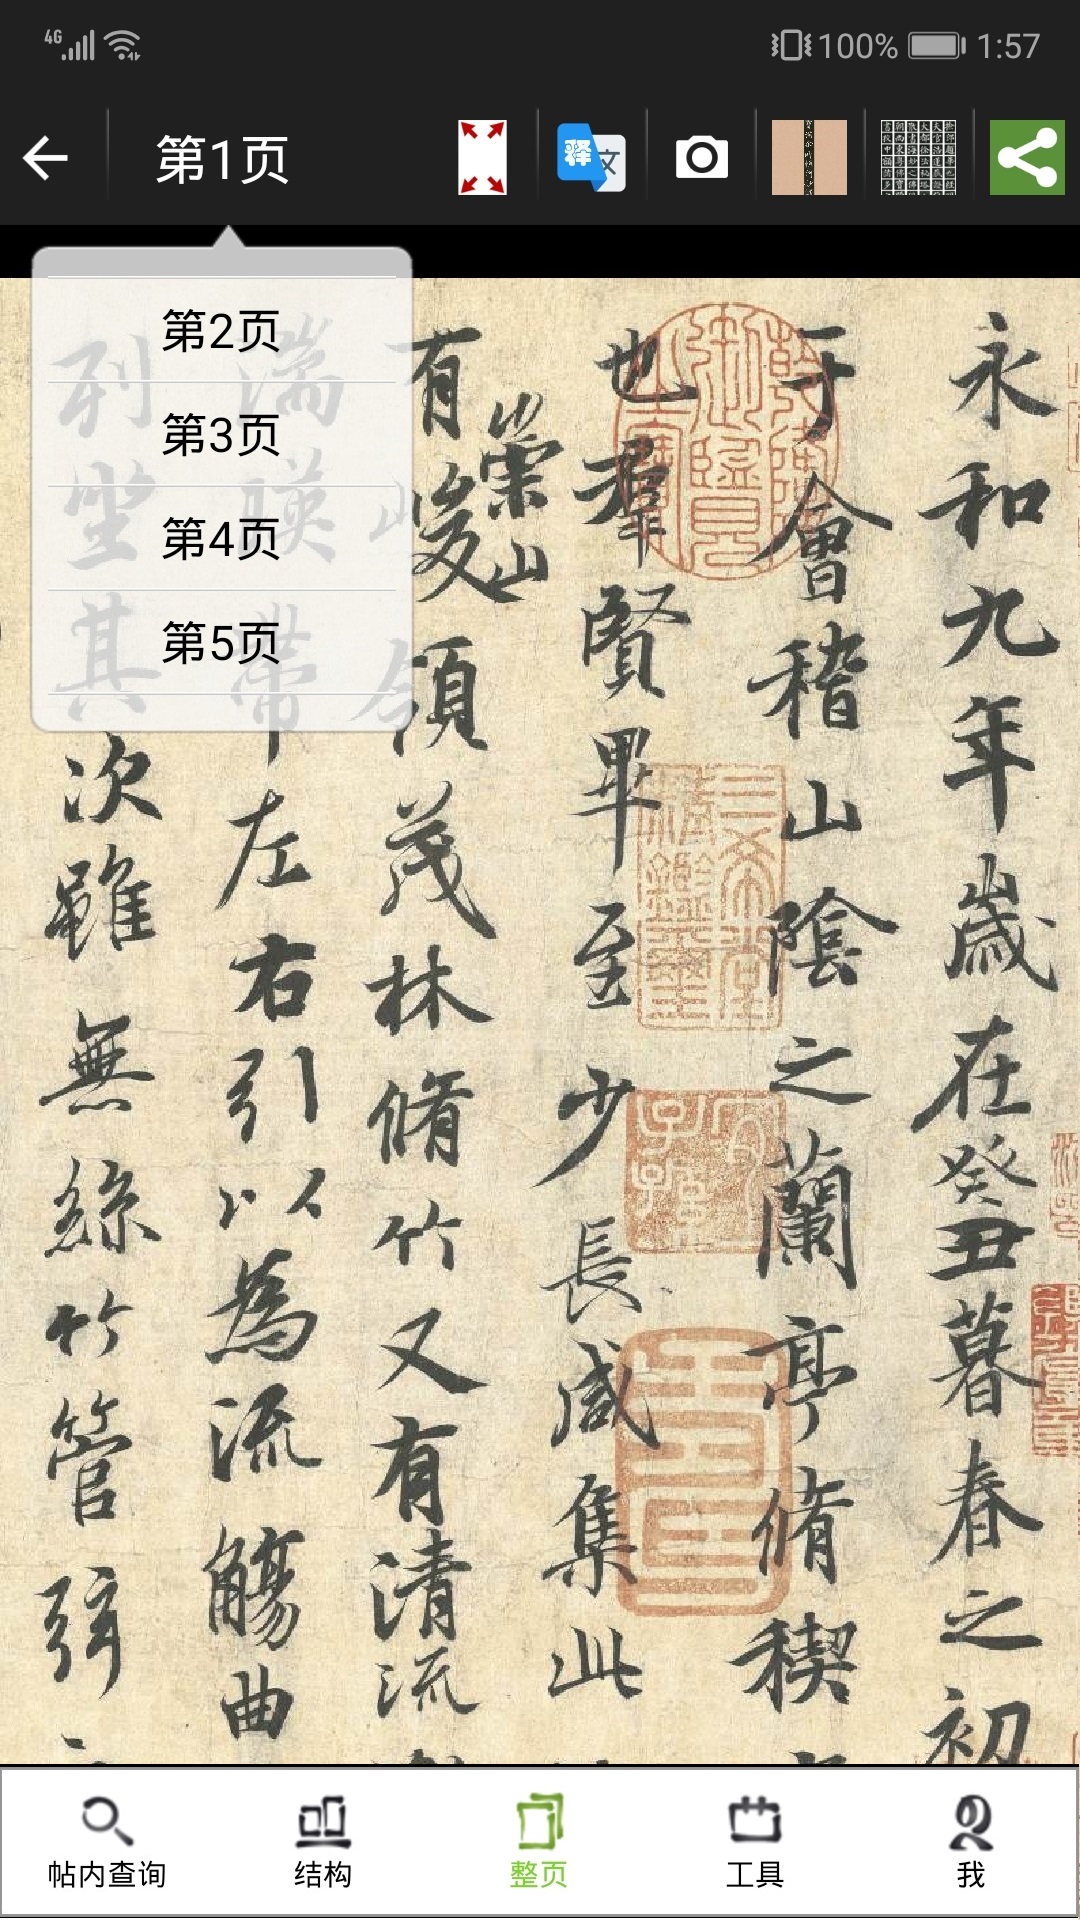 4G
100%
1:57
第1页
释文
第2页
第3页
第4页
第5页
永和九年歲在癸丑暮春之初
于會稽山陰之蘭亭脩稧
也羣賢畢至少長咸集此
有崇山峻領茂林脩竹又有清流
湍暎帶左右引以為流觴曲
列坐其次雖無絲竹管弦
三希堂精鑑璽
宜子孫
帖内查询
结构
整页
工具
我